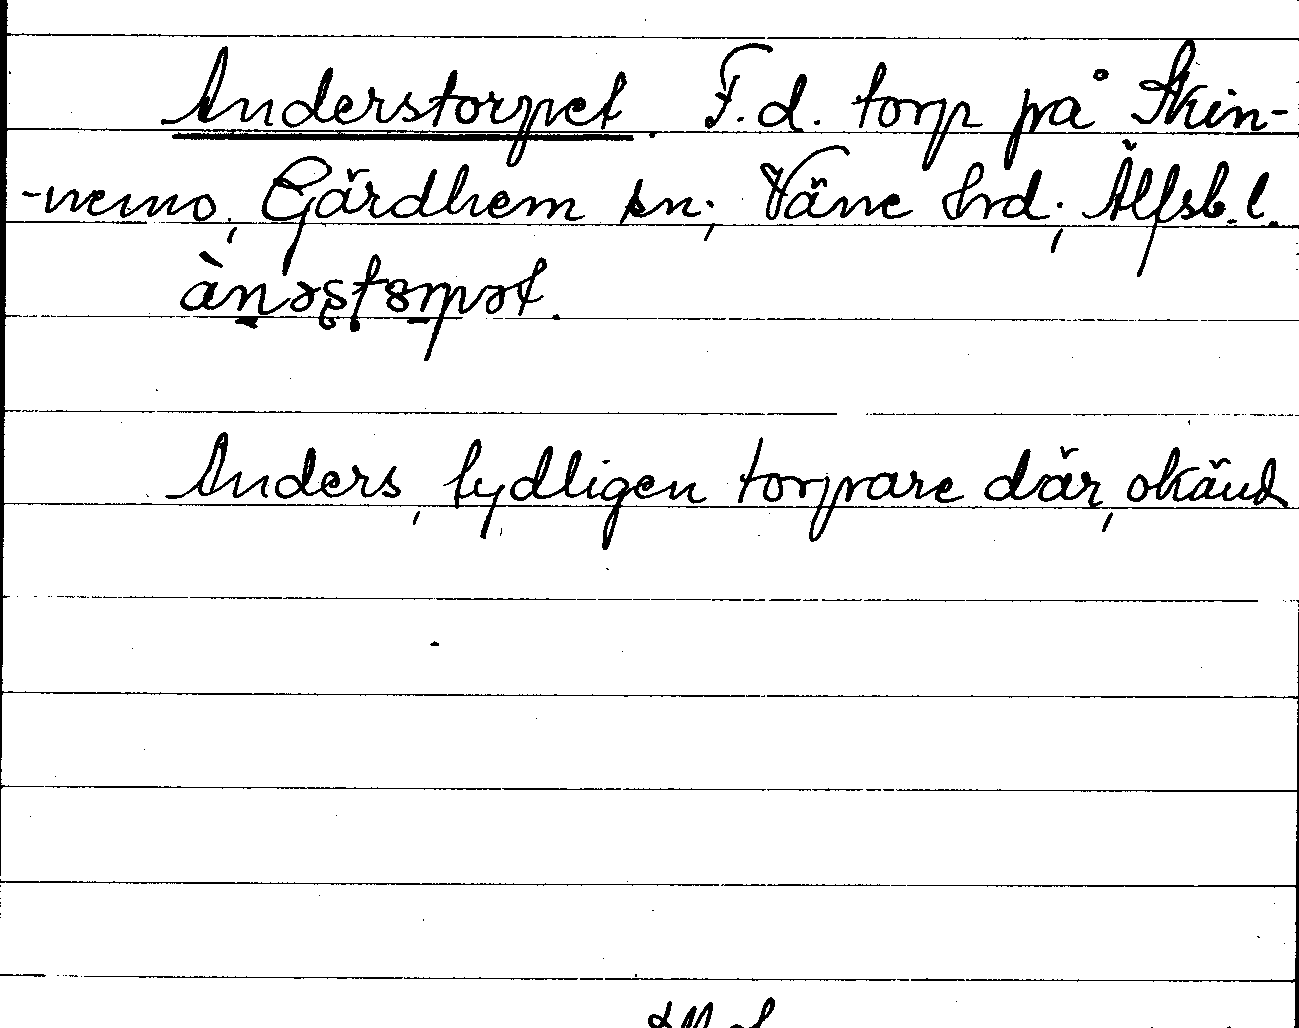 Anderstorpet. F.d. torp på Skin-
-nemo, Gärdhem sn; Väne hrd; Älfsb. l.
Anders, tydligen torpare där, okänd